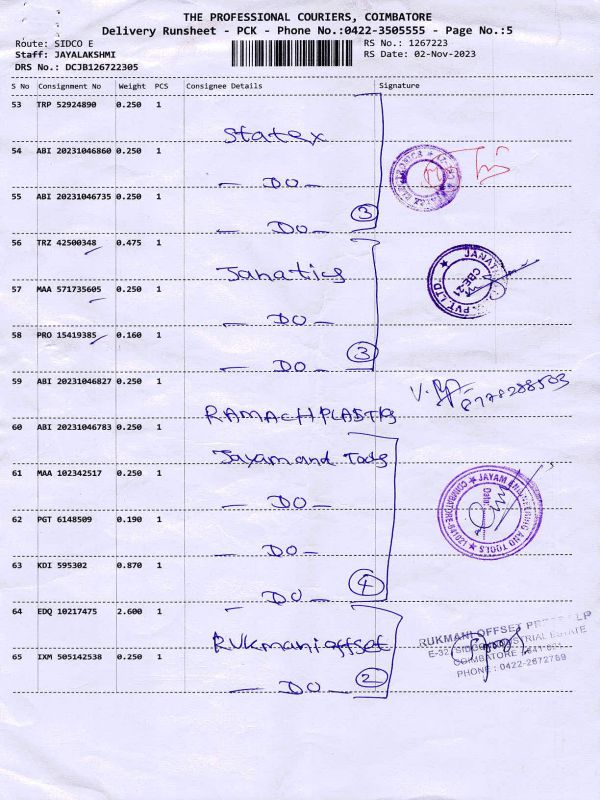 THE PROFESSIONAL COURIERS, COIMBATORE
Delivery Runsheet - PCK - Phone No.:0422-3505555 - Page No.:5
Route: SIDCO E
RS No.: 1267223
Staff: JAYALAKSHMI
RS Date: 02-Nov-2023
DRS No.: DCJB126722305
S No Consignment No Weight PCS Consignee Details Signature
53 TRP 52924890 0.250 1
Statex
54 ABI 20231046860 0.250 1
— DO —
55 ABI 20231046735 0.250 1
— DO — 3
56 TRZ 42500348 0.475 1
Janatics
JANATICS
CBE-21
PVT. LTD.
57 MAA 571735605 0.250 1
— DO —
58 PRO 15419385 0.160 1
— DO — 3
59 ABI 20231046827 0.250 1
RAMACH PLASTIKS
60 ABI 20231046783 0.250 1
Jayam and Tools
61 MAA 102342517 0.250 1
— DO —
JAYAM ENGINEERING AND TOOLS
COIMBATORE
Date
62 PGT 6148509 0.190 1
— DO —
63 KDI 595302 0.870 1
— DO — 4
64 EDQ 10217475 2.600 1
Rukmani offset 
RUKMANI OFFSET
COIMBATORE
PHONE : 0422-2672769
65 IXM 505142538 0.250 1
— DO — 2